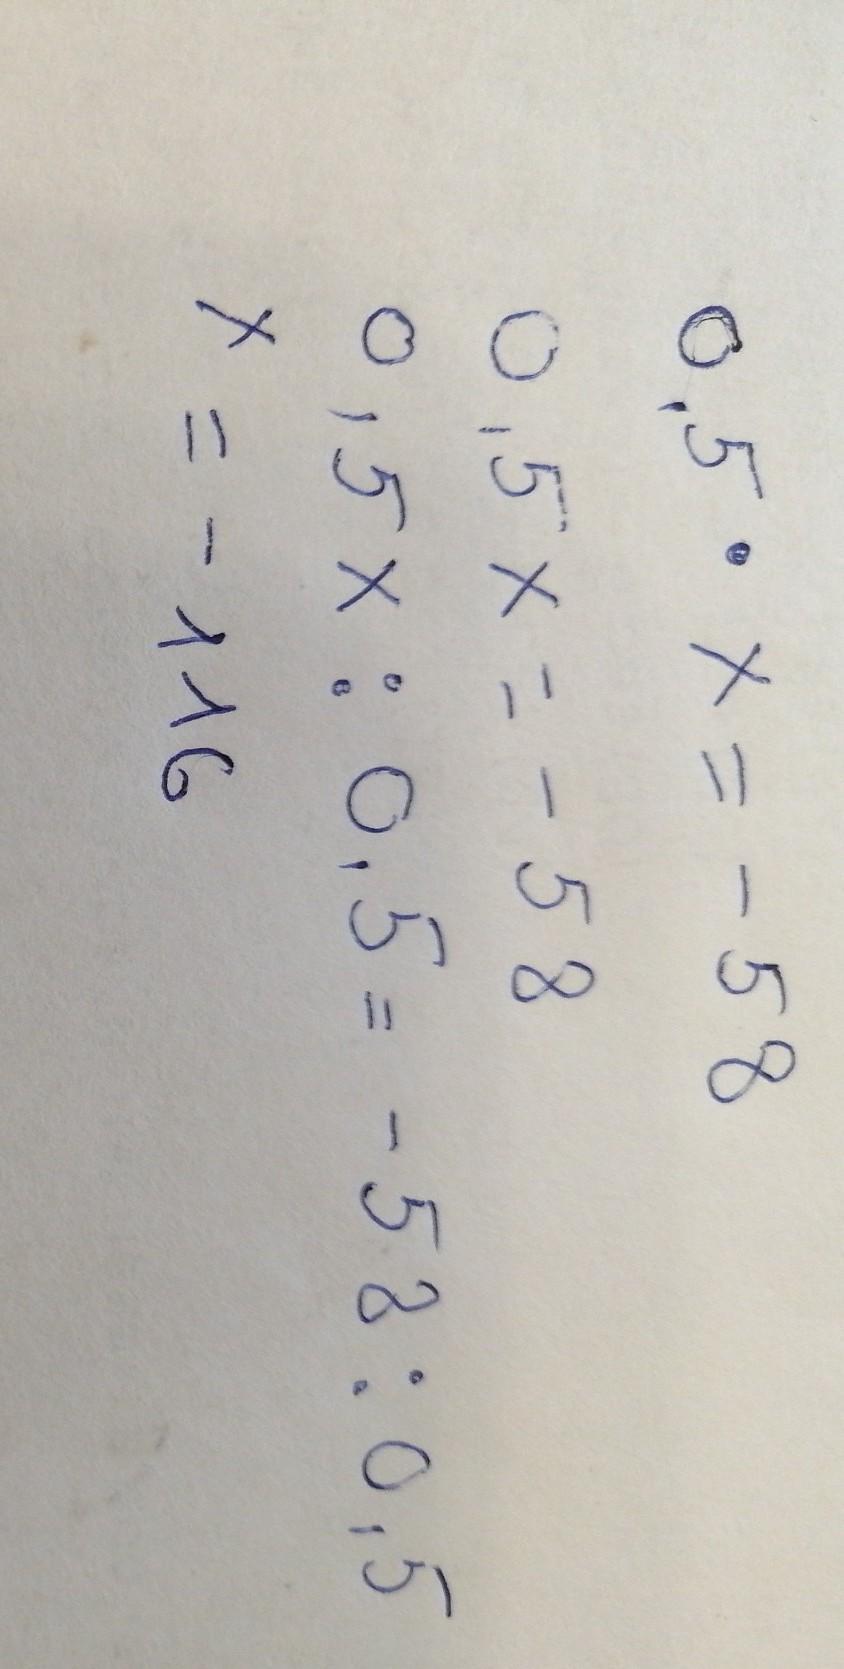 0,5 • x = - 58
0,5 x = - 58
0,5 x : 0,5 = - 58 : 0,5
x = - 116